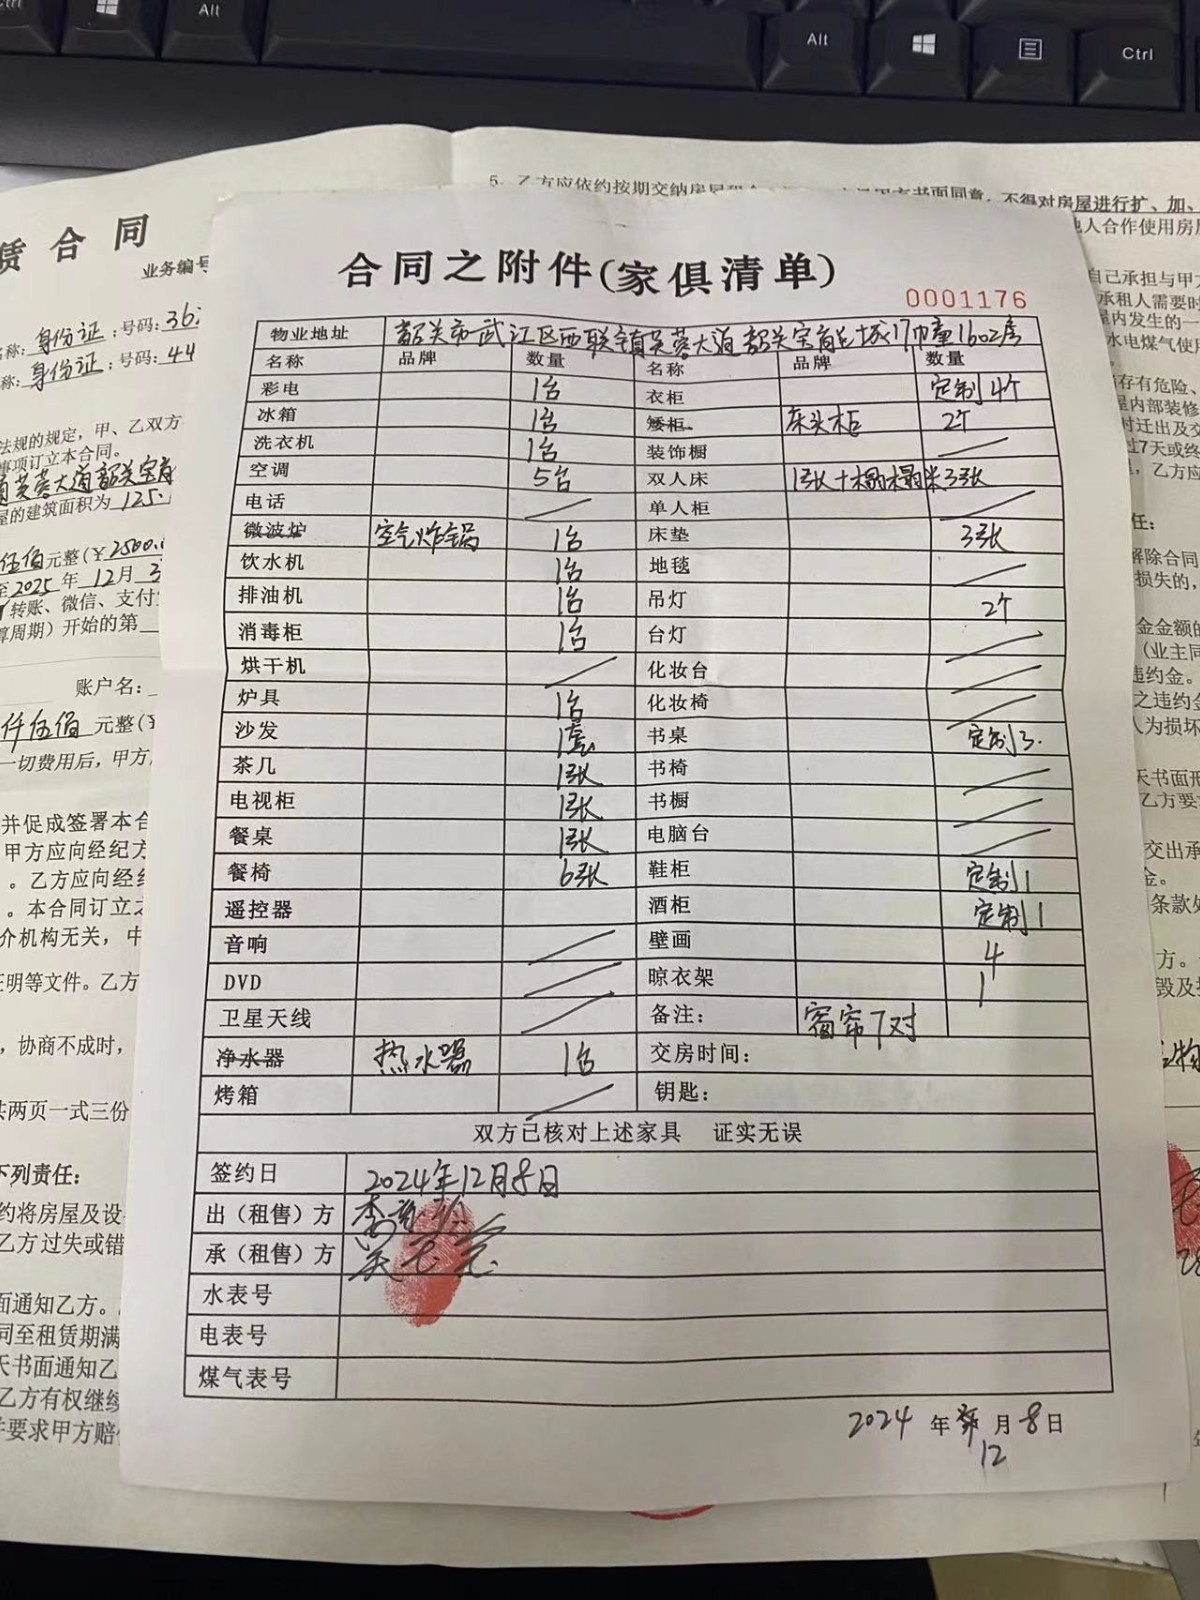 Ctrl
Alt
Alt
Ctrl
赁合同
业务编号
身份证;号码:36
身份证;号码:44
法规的规定,甲、乙双方
事项订立本合同。
芙蓉大道韶关宝
屋的建筑面积为125.
伍佰元整(¥2500.
至2025年12月3
转账、微信、支付
算周期)开始的第
账户名:
仟伍佰元整(
一切费用后,甲方
并促成签署本合
甲方应向经纪方
。乙方应向经纪
。本合同订立之
介机构无关,中
证明等文件。乙方
,协商不成时,
共两页一式三份
下列责任:
约将房屋及设
乙方过失或错
面通知乙方。
同至租赁期满
天书面通知乙
乙方有权继续
并要求甲方赔
5、乙方应依约按期交纳房屋
书面同意,不得对房屋进行扩、加、
他人合作使用房屋
自己承担与甲方
承租人需要时
屋内发生的一
水电煤气使用
存有危险、
屋内部装修
时迁出及交
过7天或终
,乙方应
任:
解除合同
损失的,
金金额的
(业主同
违约金。
之违约金
人为损坏
天书面形
乙方要
交出承
金。
条款处
方。
毁及
合同之附件(家俱清单)
0001176
物业地址 韶关市武江区西联镇芙蓉大道韶关宝能城17幢1602房
名称 品牌 数量 名称 品牌 数量
彩电 1台 衣柜 定制4个
冰箱 1台 矮柜 床头柜 2个
洗衣机 1台 装饰橱 /
空调 5台 双人床 1张+榻榻米3张
电话 / 单人柜 /
微波炉 空气炸锅 1台 床垫 3张
饮水机 1台 地毯 /
排油机 1台 吊灯 2个
消毒柜 1台 台灯 /
烘干机 / 化妆台 /
炉具 1台 化妆椅 /
沙发 1套 书桌 定制3.
茶几 1张 书椅 /
电视柜 1张 书橱 /
餐桌 1张 电脑台 /
餐椅 6张 鞋柜 定制1
遥控器 酒柜 定制1
音响 / 壁画 4
DVD / 晾衣架 1
卫星天线 / 备注: 窗帘7对
净水器 热水器 1台 交房时间:
烤箱 / 钥匙:
双方已核对上述家具 证实无误
签约日 2024年12月8日
出(租售)方
承(租售)方
水表号
电表号
煤气表号
2024年 月8日
12